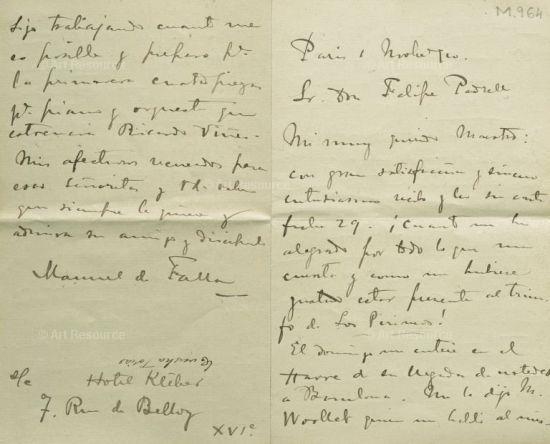 M.964
Paris 1 Novbre
Sr. Don Felipe Pedrell
Mi muy querido Maestro:
con gran satisfacción y sincero
entusiasmo recibo y leo su carta
fecha 29. ¡Cuanto me ha
alegrado por todo lo que me
cuenta y como me hubiese
gustado estar presente al triun-
fo de Los Pirineos!
El domingo me enteré en el
Havre de su llegada de ustedes
a Barcelona. Me lo dijo M.
Woollet quien me habló al mis-
Sigo trabajando cuanto me
es posible y preparo pa.
la primavera cuatro piezas
pa. piano y orquesta que
estrenará Ricardo Viñes.
Mis afectuosos recuerdos para
esas señoritas y Vd. sabe
que siempre le quiere y
admira su amigo y discípulo
Manuel de Falla
s/c Hotel Kléber
7. Rue de Belloy
XVIe
© Art Resource
© Art Resource
© Art Resource
© Art Resource